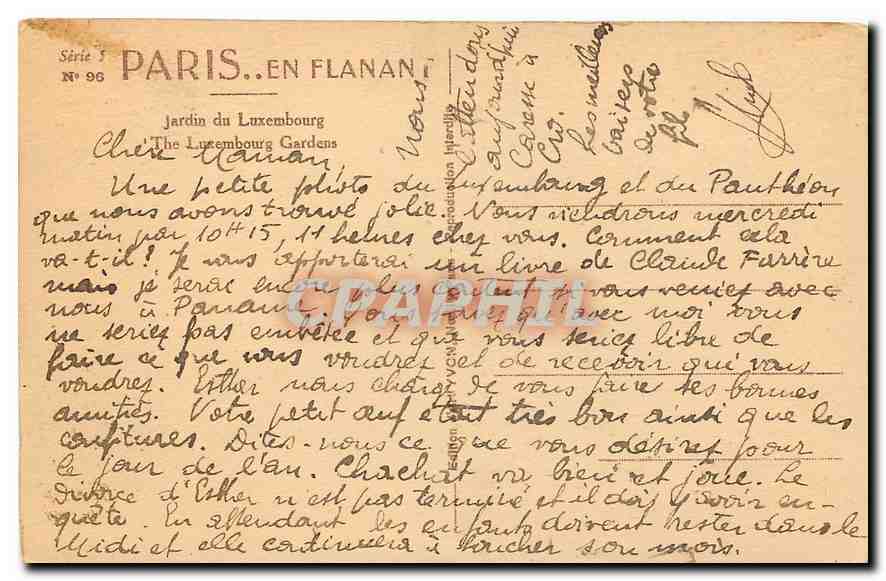 Série 5
N° 96
PARIS.. EN FLANANT
Jardin du Luxembourg
The Luxembourg Gardens
Chère Maman,
Une petite photo du Luxembourg et du Panthéon
que nous avons trouvé jolie. Nous viendrons mercredi
matin par 10H15, 11 heures chez vous. Comment cela
va-t-il? Je vous apporterai un livre de Claude Farrère
mais je serai encore plus content si vous veniez avec
nous à Paname. Vous savez qu'avec moi vous
ne seriez pas embêtée et que vous seriez libre de
faire ce que vous voudrez et de recevoir qui vous
voudrez. Esther nous charge de vous faire ses bonnes
amitiés. Votre petit œuf était très bon ainsi que les
confitures. Dites-nous ce que vous désirez pour
le jour de l'an. Chachat va bien et joue. Le
divorce d'Esther n'est pas terminé et il doit y avoir en-
quête. En attendant les enfants doivent rester dans le
Midi et elle continuera à toucher son mois.
Nous
attendons
aujourd'hui
à
Les meilleurs
baisers
de votre
fils
Edition d'Art YVON
Reproduction Interdite
CPAPHIL